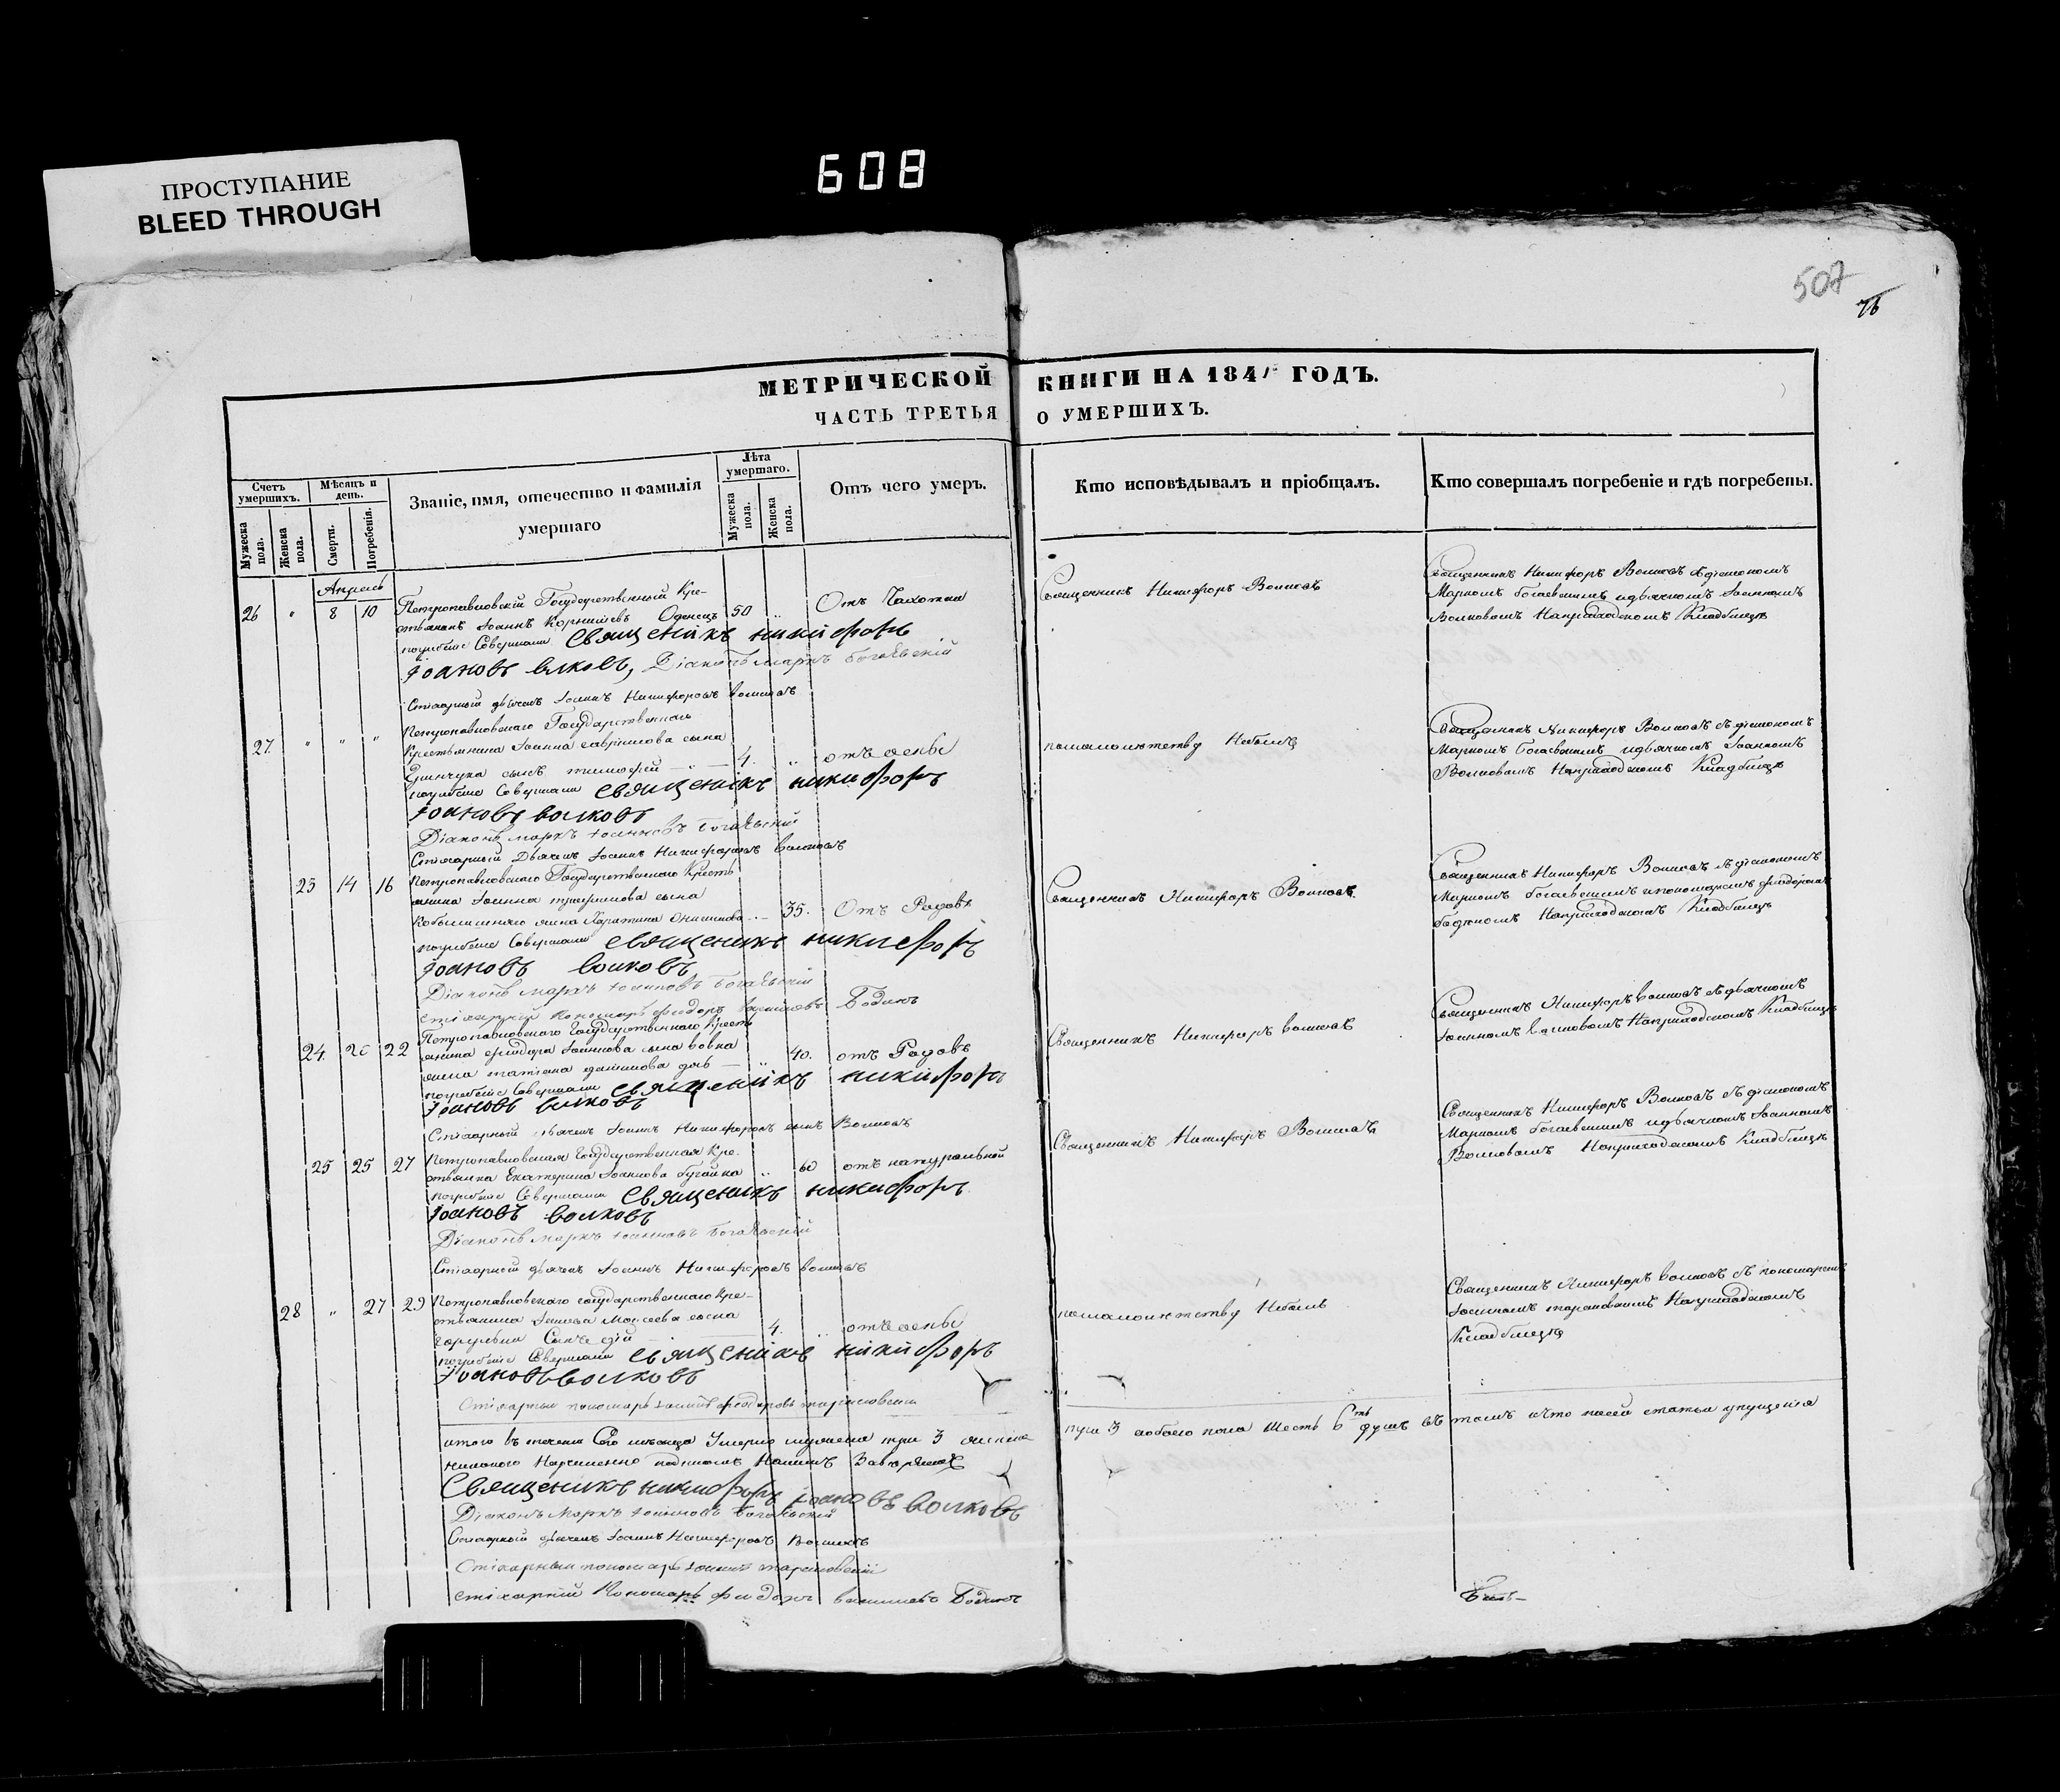 ПРОСТУПАНИЕ
BLEED THROUGH
608
507
76
МЕТРИЧЕСКОЙ КНИГИ НА 1841 ГОДЪ.
ЧАСТЬ ТРЕТЬЯ О УМЕРШИХЪ.
Счетъ умершихъ.
Мужеска пола.
Женска пола.
Мѣсяцъ и день.
Смерти.
Погребенія.
Званіе, имя, отечество и фамилія умершаго
Лѣта умершаго.
Мужеска пола.
Женска пола.
Отъ чего умеръ.
Кто исповѣдывалъ и пріобщалъ.
Кто совершалъ погребеніе и гдѣ погребены.
Апрель
26 " 8 10 Петропавловскій Государственный Кре-
стьянинъ Іоаннъ Корнѣевъ Одинецъ 50 " Отъ Чахотки
Священникъ Никифоръ Волковъ
Священникъ Никифоръ Волковъ съ діакономъ
Маркомъ Богаевскимъ и дьячкомъ Іоанномъ
Волковымъ На приходскомъ Кладбищѣ
погребеніе Совершали Священикъ никифоръ
Іоановъ волковъ, Діаконъ Маркъ Богаевскій
Стихарный дьячекъ Іоаннъ Никифоровъ Волковъ
27. " " " Петропавловскаго Государственнаго
Крестьянина Іоанна гаврилова сына
сынъ тимофей 4. " отъ оспы
по малолетству Небылъ
Священникъ Никифоръ Волковъ съ діакономъ
Маркомъ Богаевскимъ и дьячкомъ Іоанномъ
Волковымъ На приходскомъ Кладбищѣ
погребеніе Совершали Священикъ никифоръ
Іоановъ волковъ
Діаконъ Маркъ Іоанновъ Богаевскій
Стихарный Дьячекъ Іоаннъ Никифоровъ Волковъ
23 14 16 Петропавловскаго Государственнаго Кресть
янина Іоанна трофимова сына
жена 35. Отъ Родовъ
Священникъ Никифоръ Волковъ
Священникъ Никифоръ Волковъ съ діакономъ
Маркомъ Богаевскимъ и пономаремъ
На приходскомъ Кладбищѣ
погребеніе Совершали Священикъ никифоръ
Іоановъ волковъ
Діаконъ Маркъ Іоанновъ Богаевскій
стихарній Пономарь
24. 20 22 Петропавловскаго Государственнаго Кресть
янина Іоаннова сына вовка
жена татіана 40. отъ Родовъ
Священникъ Никифоръ волковъ
Священникъ Никифоръ волковъ съ дьячкомъ
Іоанномъ волковымъ На приходскомъ Кладбищѣ
погребеніе Совершали Священикъ никифоръ
Іоановъ волковъ
Стихарный дьячекъ Іоаннъ Никифоровъ сынъ Волковъ
25 25 27 Петропавловская Государственная Кре-
стьянка Екатерина Іоаннова " 60 отъ натуральной
Священникъ Никифоръ Волковъ
Священникъ Никифоръ Волковъ съ діакономъ
Маркомъ Богаевскимъ и дьячкомъ Іоанномъ
Волковымъ На приходскомъ Кладбищѣ
погребеніе Совершали Священикъ никифоръ
Іоановъ волковъ
Діаконъ Маркъ Іоанновъ Богаевскій
Стихарной дьячекъ Іоаннъ Никифоровъ волковъ
28 " 27 29 Петропавловскаго государственнаго Кре-
стьянина Моисеева сына
4. " отъ оспы
по малолетству Небылъ
Священникъ Никифоръ волковъ съ пономаремъ
Іоанномъ На приходскомъ
Кладбищѣ
погребеніе Совершали Священикъ никифоръ
Іоановъ волковъ
Стихарный пономарь
итого въ течени Сего месяца Умерло мужеска три 3 женска
три 3 обоего пола Шесть 6ть душъ въ томъ и что писей статьи упущенія
никакого Неучиненно подписомъ Нашимъ
Священикъ никифоръ Іоановъ волковъ
Діаконъ Маркъ Іоанновъ Богаевскій
Стихарный дьячекъ Іоаннъ Никифоровъ Волковъ
Стихарный пономарь
стихарній Пономарь